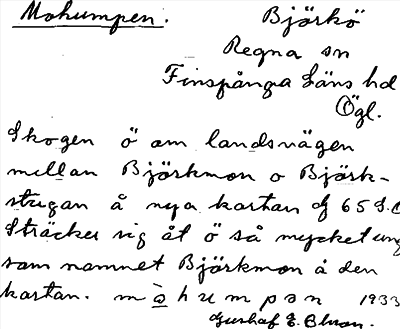 Mohumpen.
Björkö
Regna sn
Finspånga Läns hd
Ögl.
Skogen ö om landsvägen
mellan Björkmon o Björk-
stugan å nya kartan
Sträcker sig åt ö så mycket ung
som namnet Björkmon å den
kartan. mòhumpən 1933
Gustaf E.